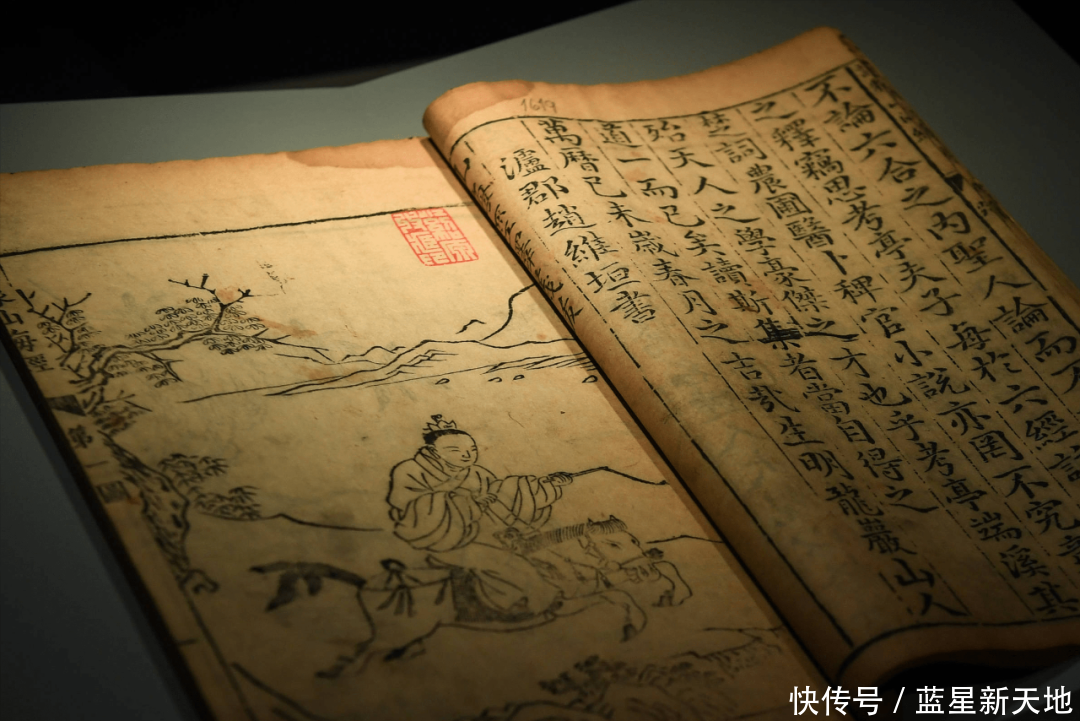 1619
不論六合之内聖人論而
之釋竊思考亭夫子每於六經
之詞農圃醫卜稗官小說亦罔不究
殆天人之學豪傑之才也乎考亭端溪其
道一而已矣讀斯集者當自得之
萬曆己未歲春月之吉哉生明龍巖山人
瀘郡趙維垣書
山海經
第一圖
快传号 / 蓝星新天地